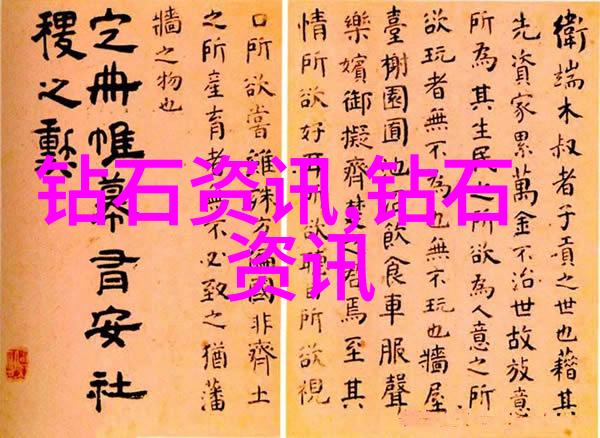 衛端木叔者子貢之世也藉其
先資家累萬金不治世故放意
所為其生民之所欲為人意之所
欲玩者無不為也無不玩也牆屋
臺榭園囿池沼飲食車服聲
樂嬪御擬齊楚之君焉至其
情所欲好耳所欲聽目所欲視
口所欲嘗雖殊方偏國非齊土
之所產育者無不必致之猶藩
牆之物也
定冊帷幕有安社
稷之勳
钻石资讯,钻石
资讯